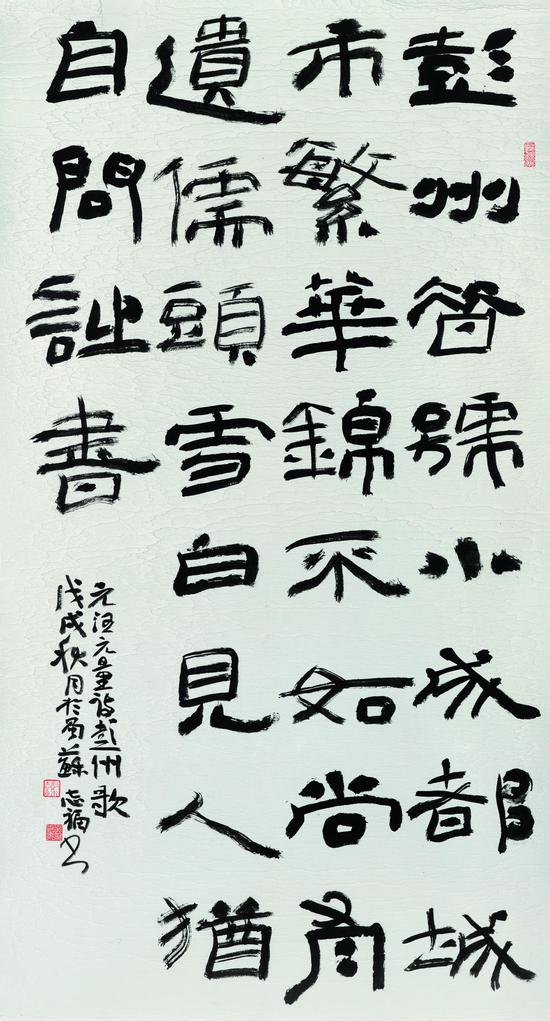 彭州昔號小成都城
市繁華錦不如尚有
遺儒頭雪白見人猶
自問詩書
元汪元量詩彭州歌
戊戌秋月於蜀蘇志福书